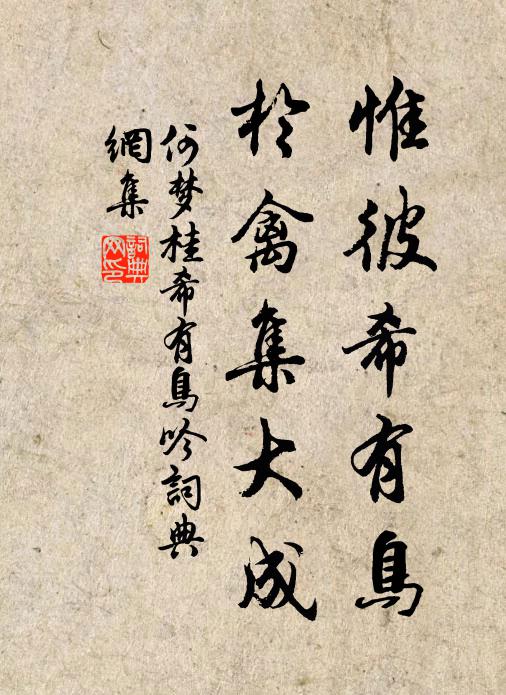 惟彼希有鳥
於禽集大成
何梦桂希有鳥吟詞典
網集
詞典网印